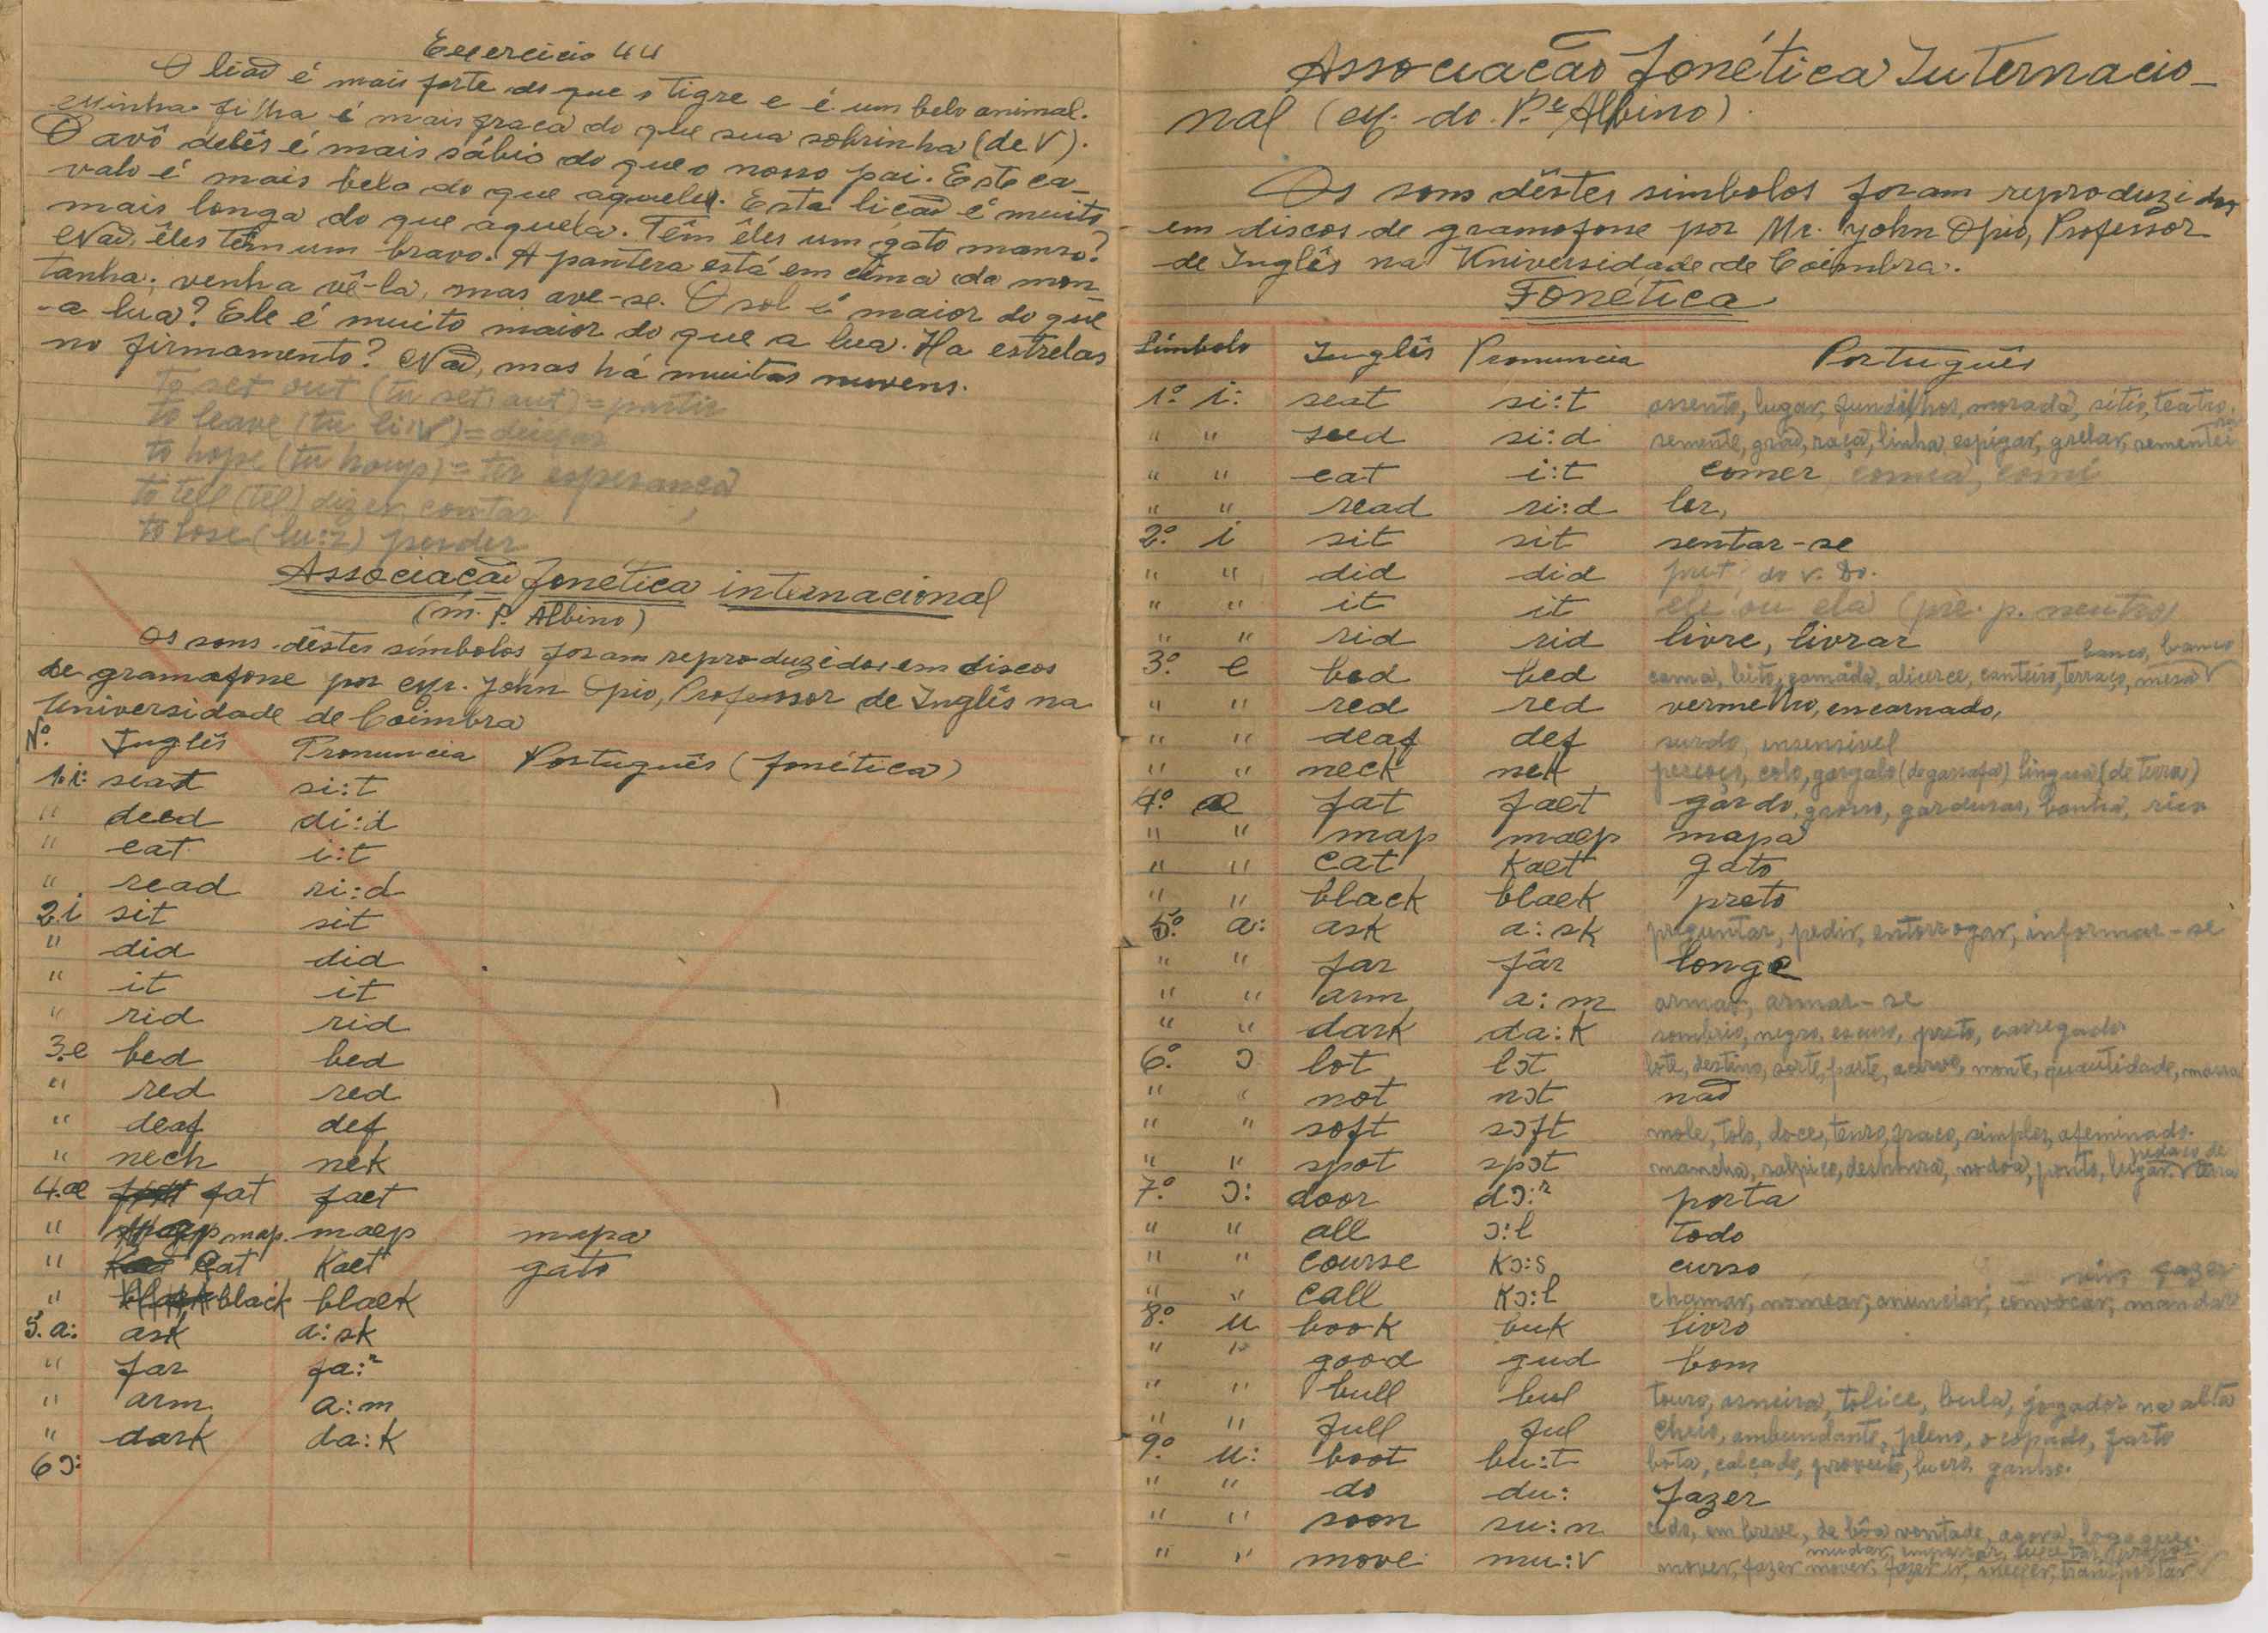 Exercicio 44
O lião é mais forte do que o tigre e é um belo animal.
Minha filha é mais fraca do que sua sobrinha (de V).
O avô delês é mais sábio do que o nosso pai. Este ca-
valo é mais belo do que aquele. Esta lição é muito
mais longa do que aquela. Têm êles um gato manso?
Não, êles têm um bravo. A pantera está em cima da mon-
tanha; venha vê-la, mas ave-se. O sol é maior do que
-a lua? Ele é muito maior do que a lua. Ha estrelas
no firmamento? Não, mas há muitas nuvens.
to set out (tu set aut) = partir
to leave (tu li:v) = deixar
to hope (tu houp) = ter esperança
to tell (tel) dizer, contar
to lose (lu:z) perder
Associação fonética internacional
(m. P. Albino)
Os sons dêstes símbolos foram reproduzidos em discos
de gramofone por Mr. John Opio, Professor de Inglês na
Universidade de Coimbra
Nº. Inglês Pronuncia Português (fonética)
1. i: seat si:t
" deed di:d
" eat i:t
" read ri:d
2. i sit sit
" did did
" it it
" rid rid
3. e bed bed
" red red
" deaf def
" nech nek
4. æ fat fæt
" map. mæp mapa
" Cat Kæt gato
" black blæck
5. a: ask a:sk
" far fa:ʳ
" arm a:m
" dark da:k
6 ɔ:
Associacão fonética Internacio-
nal (ex. do P.e Albino).
Os sons dêstes simbolos foram reproduzidos
em discos de gramofone por Mr. John Opio, Professor
de Inglês na Universidade de Coimbra.
Fonética
Símbolo Inglês Pronuncia Português
1º. i: seat si:t assento, lugar, fundilhos, morada, sitio, teatro
" " seed si:d semente, grão, raça, linha espigar, grelar, sementei
" " eat i:t comer comia, comi
" " read ri:d ler,
2º. i sit sit sentar-se
" " did did pret. do v. Do.
" " it it ele ou ela (pre. p. neutro)
" " rid rid livre, livrar
banco, banco
3º. e bed bed cama, leito, camada, alicerce, canteiro, terraço, mesa
" " red red vermelho, encarnado,
" " deaf def surdo, insensivel
" " neck nek pescoço, colo, gargalo (de garrafa) lingua (de terra)
4º. æ fat fæt gardo, grosso, garduras, banha, rico
" " map mæp mapa
" " cat Kæt gato
" " black blæck preto
5º. a: ask a:sk preguntar, pedir, entorrogar, informar-se
" " far fâr longe
" " arm a:m armar, armar-se
" " dark da:k sombrio, negro, escuro, preto, carregado
6º. ɔ lot lɔt lote, destino, sorte, parte, acervo, monte, quantidade, massa
" " not nɔt não
" " soft sɔft mole, tolo, doce, tenro, fraco, simples, afeminado.
pedaço de
" " spot spɔt mancha, salpico, deshonra, nodoa, ponto, lugar. terra
7º. ɔ: door dɔ:ʳ porta
" " all ɔ:l todo
" " course Kɔ:s curso
" " call Kɔ:l chamar, nomear, anunciar, convocar, mandar
vir, fazer
8º. u book buk livro
" " good gud bom
" " bull bul touro, asneira, tolice, bula, jogador na alta
" " full ful cheio, ambundante, pleno, ocupado, farto
9º. u: boot bu:t bota, calçado, proveito, lucro, ganho.
" " do du: fazer
" " soon su:n cedo, em breve, de bôa vontade, agora, logo que
" " move mu:v mover, fazer mover, fazer ir, mexer, transportar